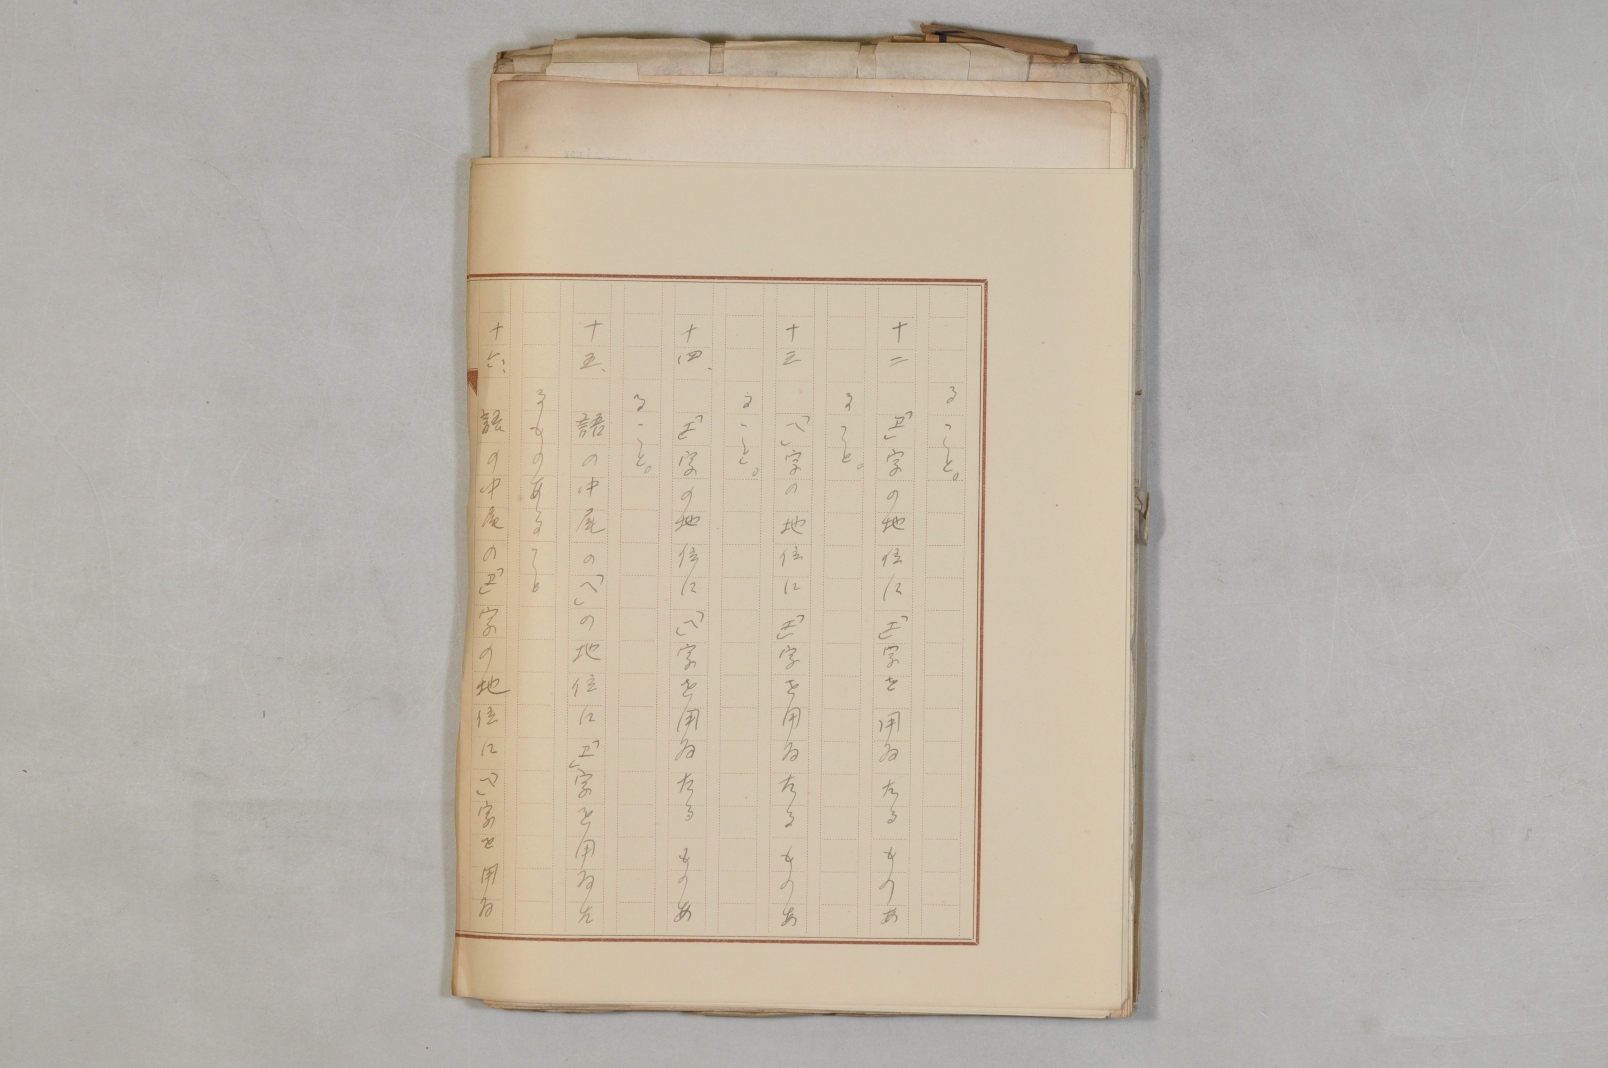 ること。
十二 「ヱ」字の地位に「エ」字を用ゐたるものあ
ること。
十三 「へ」字の地位に「エ」字を用ゐたるものあ
ること。
十四、 「エ」字の地位に「へ」字を用ゐたるものあ
ること。
十五、 語の中尾の「へ」の地位に「ヱ」字を用ゐた
るものあること
十六、 語の中尾の「ヱ」字の地位に「へ」字を用ゐ